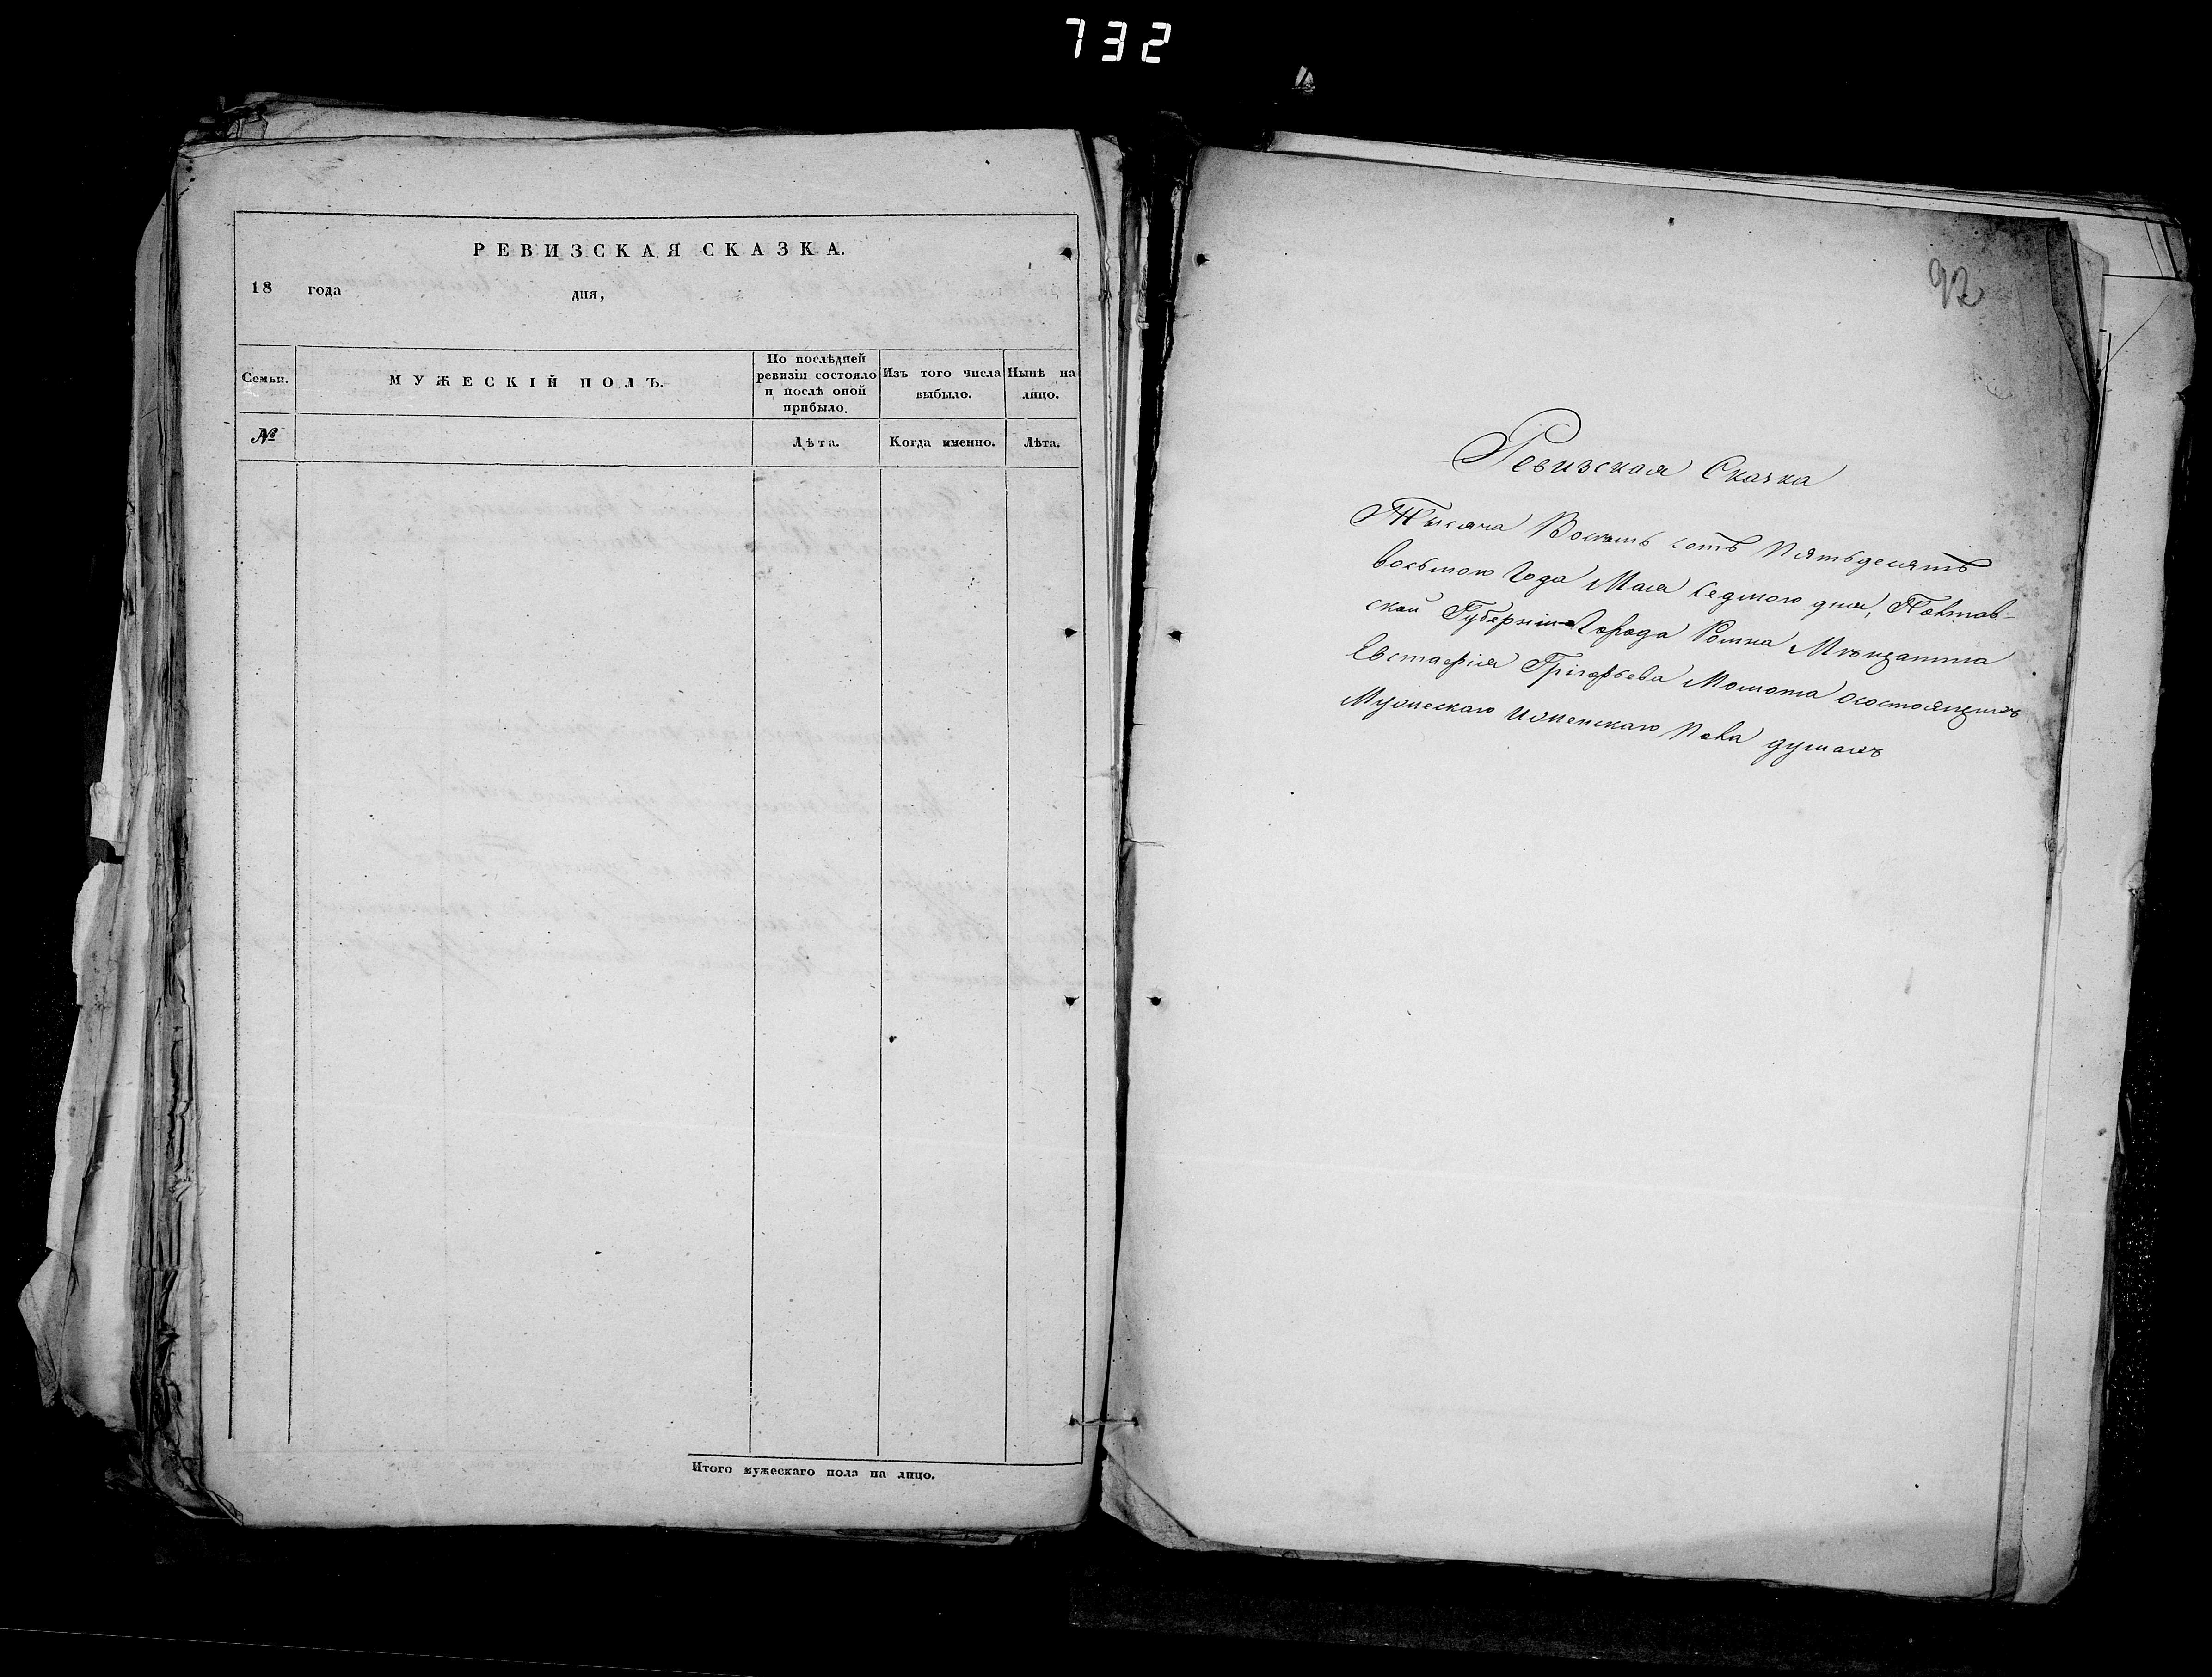 732
РЕВИЗСКАЯ СКАЗКА.
18 года дня,
Семьи.
МУЖЕСКІЙ ПОЛЪ.
По послѣдней ревизіи состояло и послѣ оной прибыло.
Изъ того числа выбыло.
Нынѣ на лицо.
№
Лѣта.
Когда именно.
Лѣта.
Итого мужескаго пола на лицо.
92
Ревизская Сказка
Тысяча Восемь сотъ Пятьдесятъ
восьмого Года Мая Седмого дня, Полтав-
ской Губерніи Города Ромна Мѣщанина
Евстафія Григорьева Момота осостоящихъ
Мужескаго иженскаго Пола душахъ